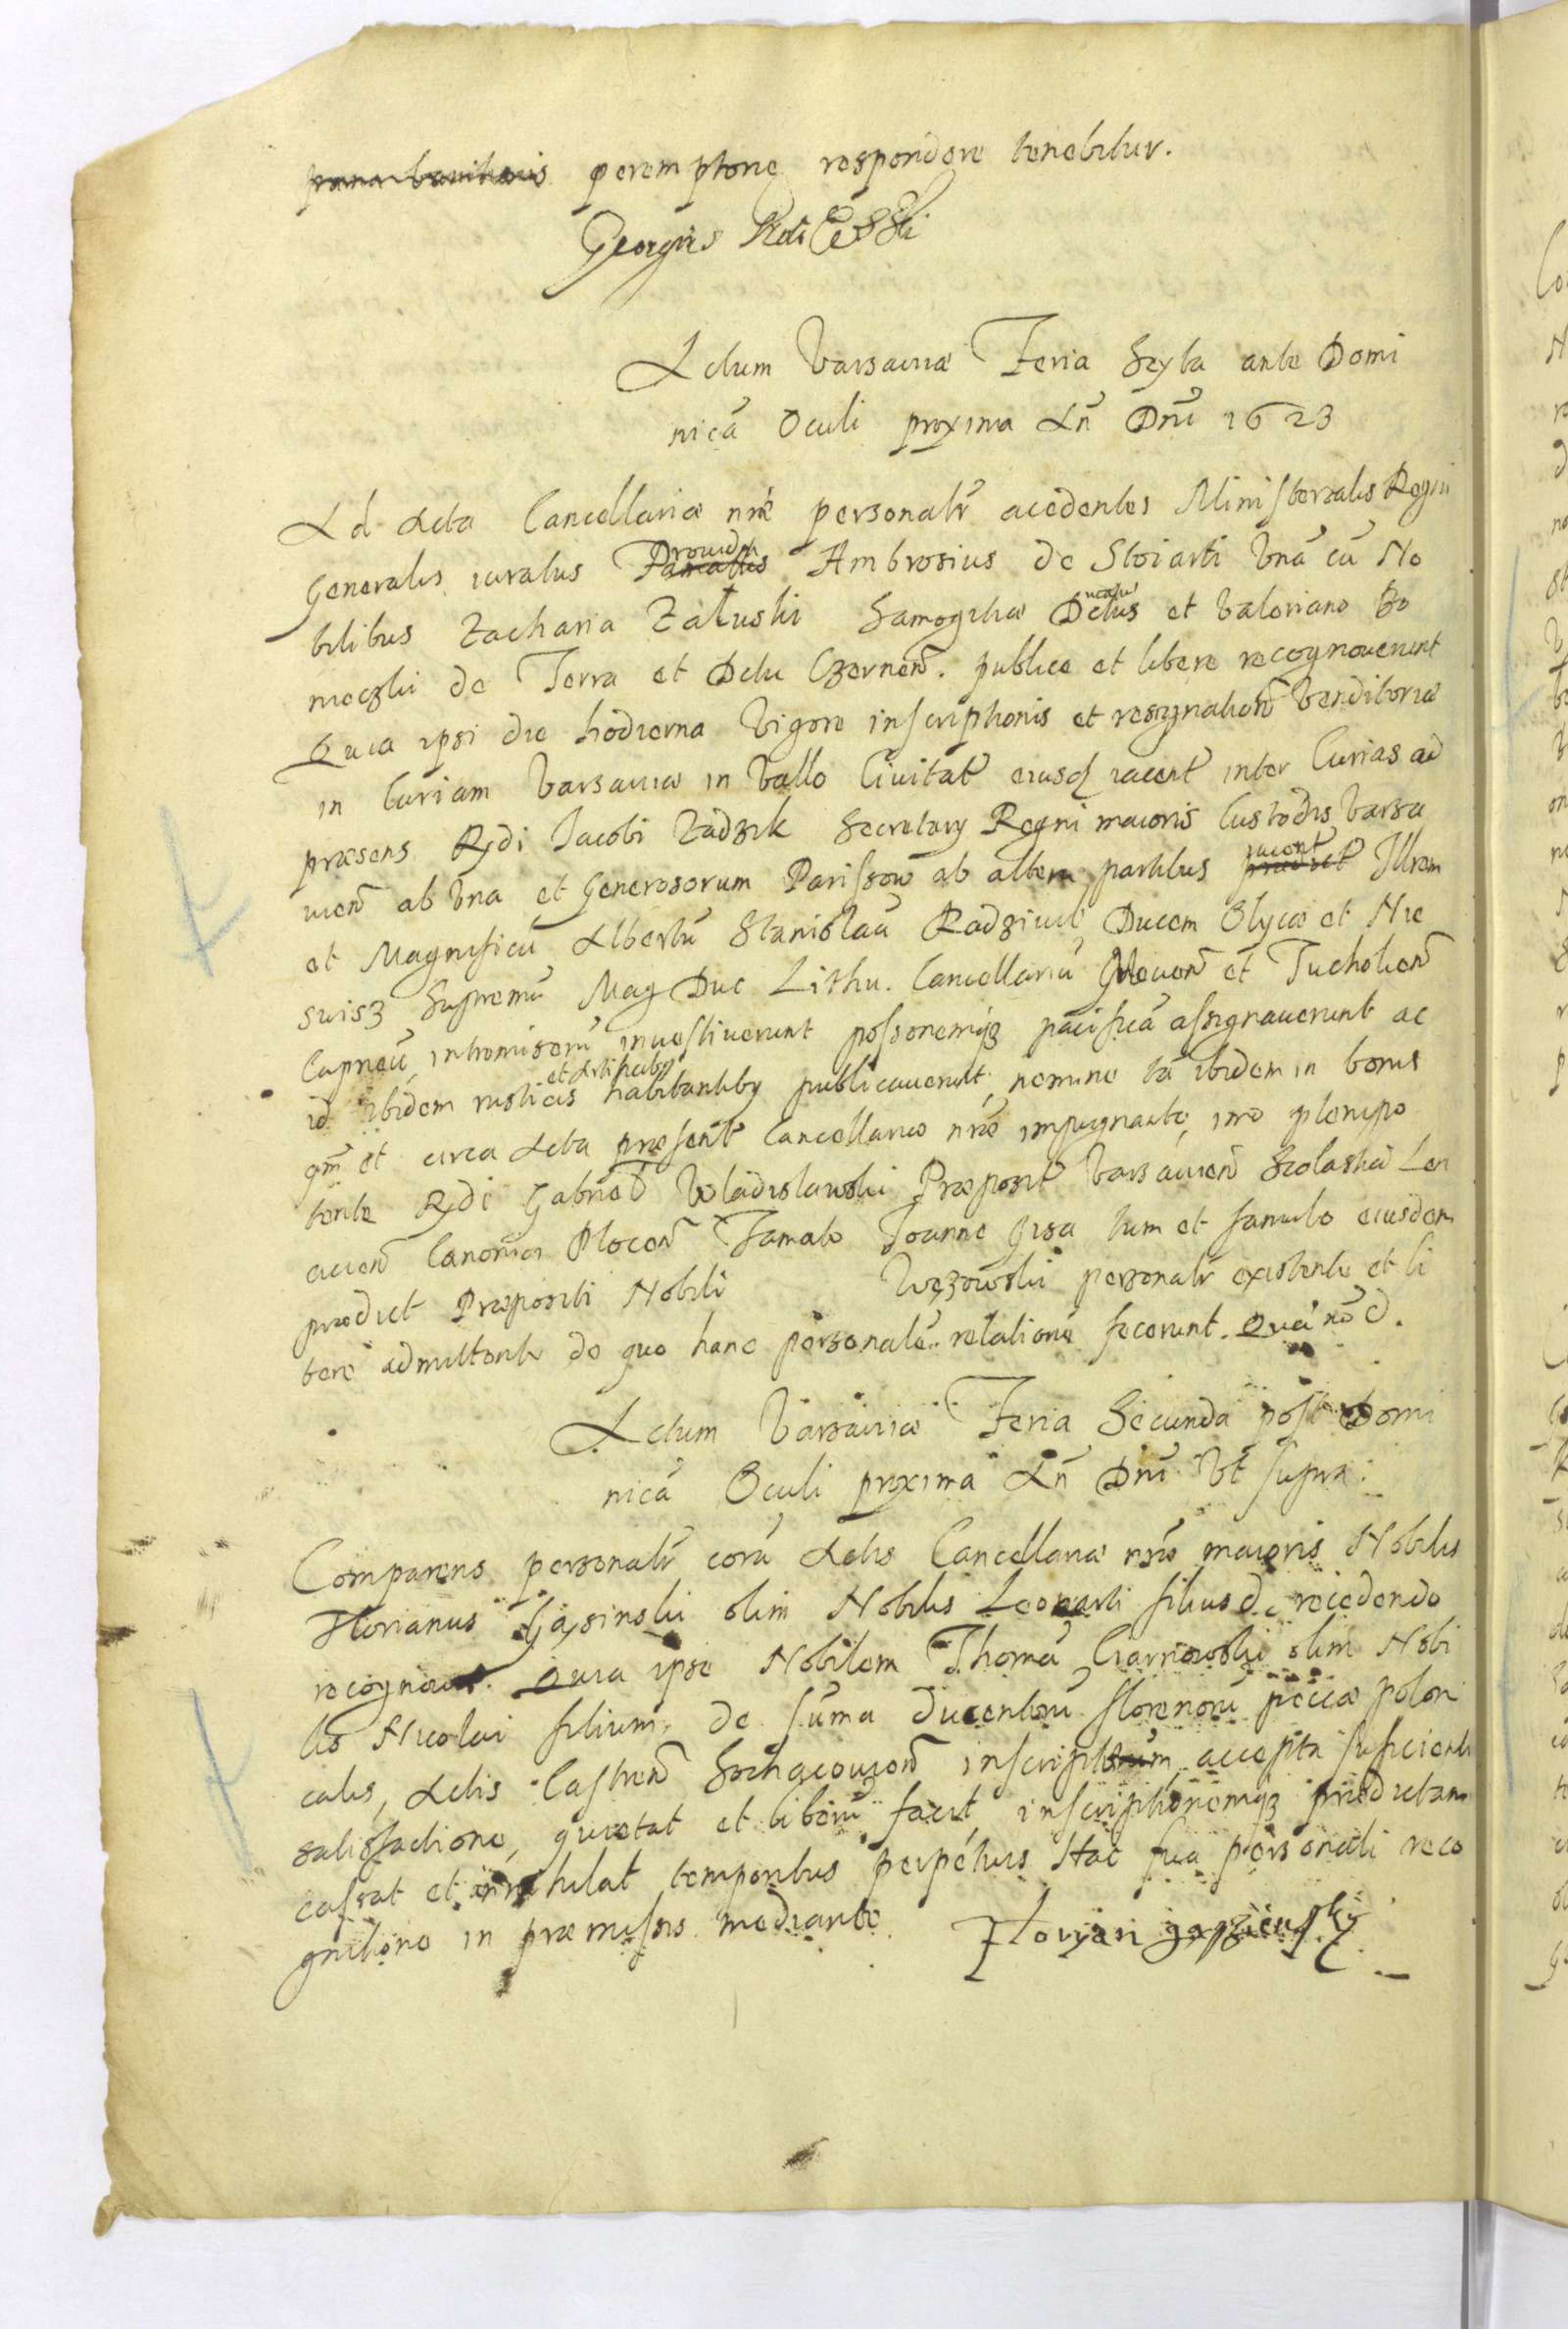 peremptorie respondere tenebitur.
Georgius
Actum Varsauiæ Feria Sexta ante Domi
nicã Oculi proxima Añ Dñi 1623
Ad Acta Cancellariæ nræ personalr̃ accedentes Ministerialis Regni
Generalis iuratus Prouidus Ambrosius de Stoiarti Vnà cũ No
bilibus Zacharia Załuski Samogitiæ Dctus et Valeriano Bo
nieczki de Terra et Dctu Czerneñ. publice et libere recognouerunt
Quia ipsi die hodierna Vigore inscriptionis et resignationĩ Venditoriæ
in Curiam Varsauiæ in Vallo Ciuitat̃ eiusd iacent̃ inter Curias ad
præsens Rỹdi Jacobi Zadzik Secretarÿ Regni maioris Custodis Varsa
vieñ ab Vna et Generosorum Parissow ab altera partibus iacent̃ Illrem
et Magnificũ Albertũ Stanislaũ Radziuił Ducem Olycæ et Nie
suisz Supremũ Mag Duc Lithu. Cancellariũ Gneueñ et Tucholieñ
Capneũ, intromiserũ inuestiverunt possonemqȝ pacificã assignauerunt ac
id ibidem rusticis et Artificibꝰ habitantibꝰ publicauerunt, nemine tã ibidem in bonis
qm̃ et circa Acta præsent̃ Cancellariæ nræ impugnante, imo plenipo
tente Rỹdi Gabriel Wladislawski Præposit̃ Varsauieñ Scolastici Len
cicieñ Canonici Ploceñ Famato Joanne Giza tum et famulo eiusdem
prædict Præpositi Nobili Węzowski personalr̃ existente et li
bere admittente de quo hanc personalẽ relationẽ fecerunt. Quà nõ d.
Actum Varsauiæ Feria Secunda post Domi
nicã Oculi proxima Añ Dñi Vt supra.
Comparens personalr̃ corã Actis Cancellariæ nræ maioris Nobilis
Florianus Gąsinski olim Nobilis Leonarti filius de recedendo
recognouit. Quia ipse Nobilem Thomã Czarnowski olim Nobi
lis Nicolai filium, de sũma ducentorũ florenorũ pecciæ poloni
calis, Actis Castreñ Sochaczouieñ inscriptorum accepta sufficienti
satisfactione, quietat et liberũ facit, inscriptionemqȝ prædictam
cassat et annihilat temporibus perpetuis Hac sua personali reco
gnitione in præmissis mediante. Floryan gąssienski